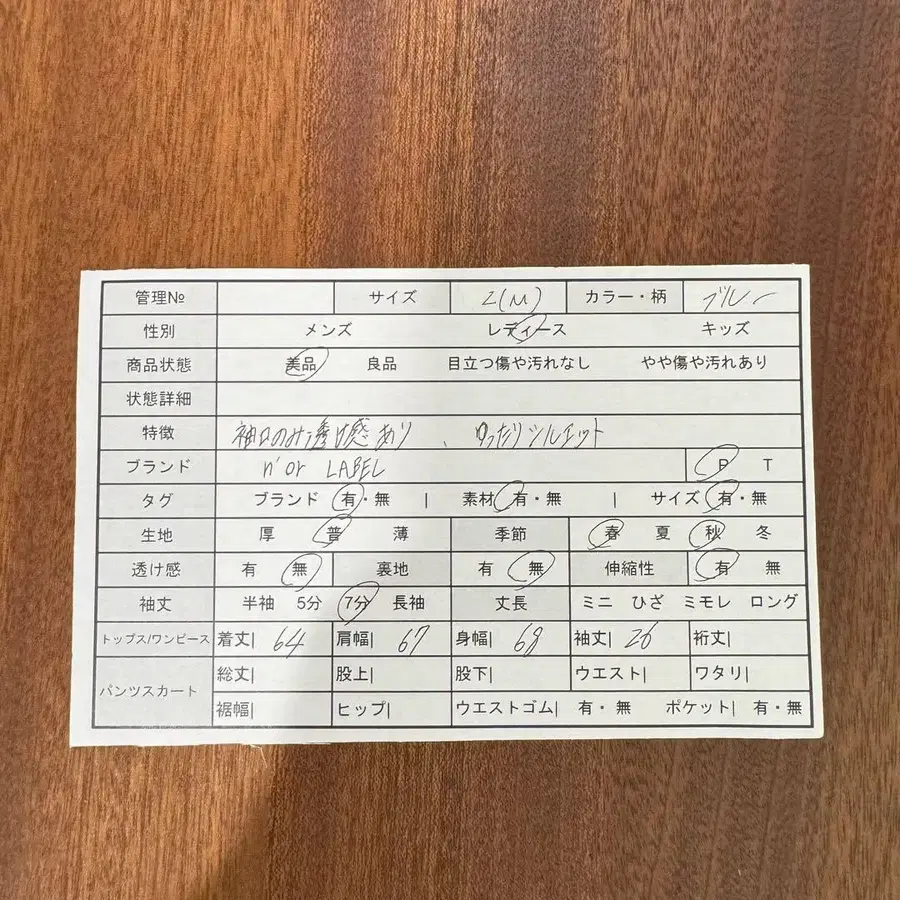 管理№ サイズ 2(M) カラー・柄 ブルー
性別 メンズ レディース キッズ
商品状態 美品 良品 目立つ傷や汚れなし やや傷や汚れあり
状態詳細
特徴 袖口のみ透け感あり、ゆったりシルエット
ブランド n'or LABEL P T
タグ ブランド 有・無 | 素材 有・無 | サイズ 有・無
生地 厚 普 薄 季節 春 夏 秋 冬
透け感 有 無 裏地 有 無 伸縮性 有 無
袖丈 半袖 5分 7分 長袖 丈長 ミニ ひざ ミモレ ロング
トップス/ワンピース 着丈| 64 肩幅| 67 身幅| 68 袖丈| 26 裄丈|
パンツスカート 総丈| 股上| 股下| ウエスト| ワタリ|
裾幅| ヒップ| ウエストゴム| 有・無 ポケット| 有・無